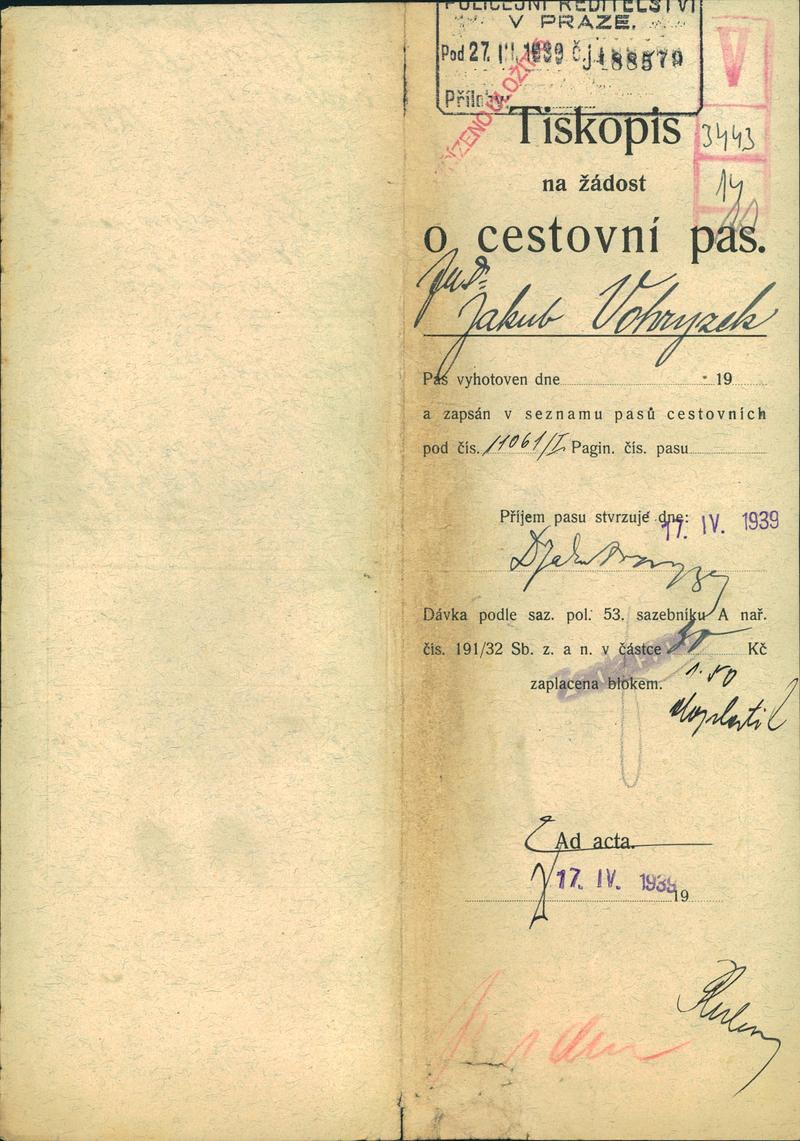 POLICEJNÍ ŘEDITELSTVÍ
V PRAZE.
Pod 27. III. 1939 č.j. 188579
Přílohy
V
3443
14
Tiskopis
na žádost
o cestovní pas.
Jakub Vohryzek
Pas vyhotoven dne 19
a zapsán v seznamu pasů cestovních
pod čís. 11061/I. Pagin. čís. pasu
Příjem pasu stvrzuje dne:
17. IV. 1939
Dávka podle saz. pol. 53. sazebníku A nař.
čís. 191/32 Sb. z. a n. v částce 30 Kč
zaplacena blokem. 1.50
doplatil
Ad acta.
17. IV. 1939
19